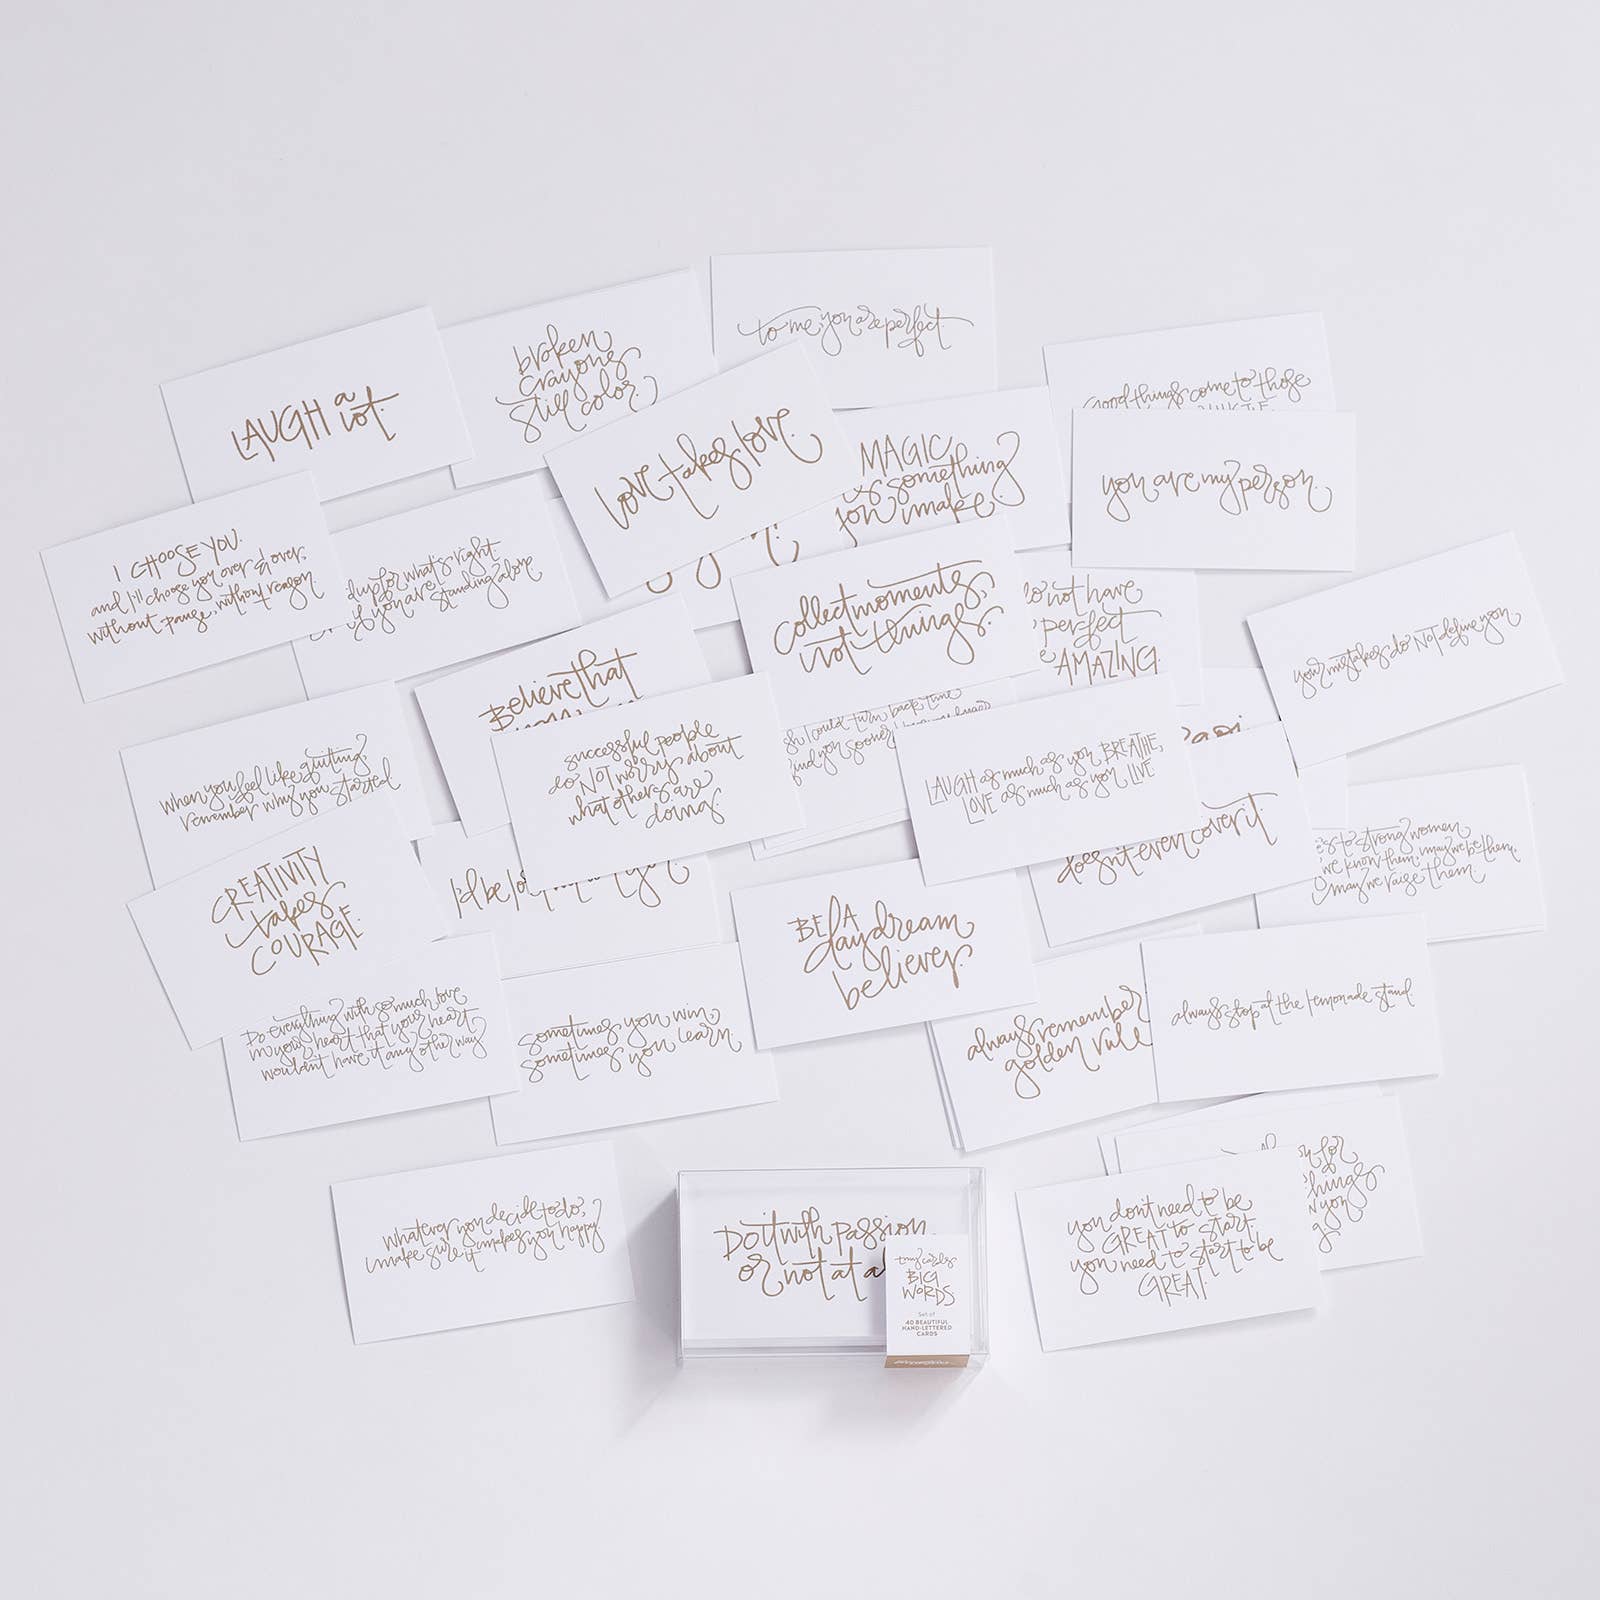 to me, you are perfect.
broken
crayons
still color.
LAUGH a
lot.
Good things come to those
Love takes love.
MAGIC
is something
you make
you are my person.
I CHOOSE YOU.
and I'll choose you over & over,
without pause, without reason
up for what's right.
if you are
standing alone
collect moments,
not things.
not have
perfect
AMAZING.
your mistakes do NOT define you
BELieve that
successful people
do NOT worry about
what others are
doing.
could turn back time
find you sooner
LAUGH as much as you BREATHE,
LOVE as much as you LIVE
when you feel like quitting
remember why you started
doesn't even cover it
to strong women
we know them, may we be them,
may we raise them.
CREATIVITY
takes
COURAGE.
I'd be
BE A
daydream
believer.
Do everything with so much love
in your heart that your heart
wouldn't have it any other way
sometimes you win,
sometimes you learn
always remember
golden rule
always stop at the lemonade stand.
for
things
you
whatever you decide to do,
make sure it makes you happy.
you don't need to be
GREAT to start.
you need to start to be
GREAT.
DO it with passion
or not at
tiny cards
BIG
WORDS
Set of
40 BEAUTIFUL
HAND-LETTERED
CARDS